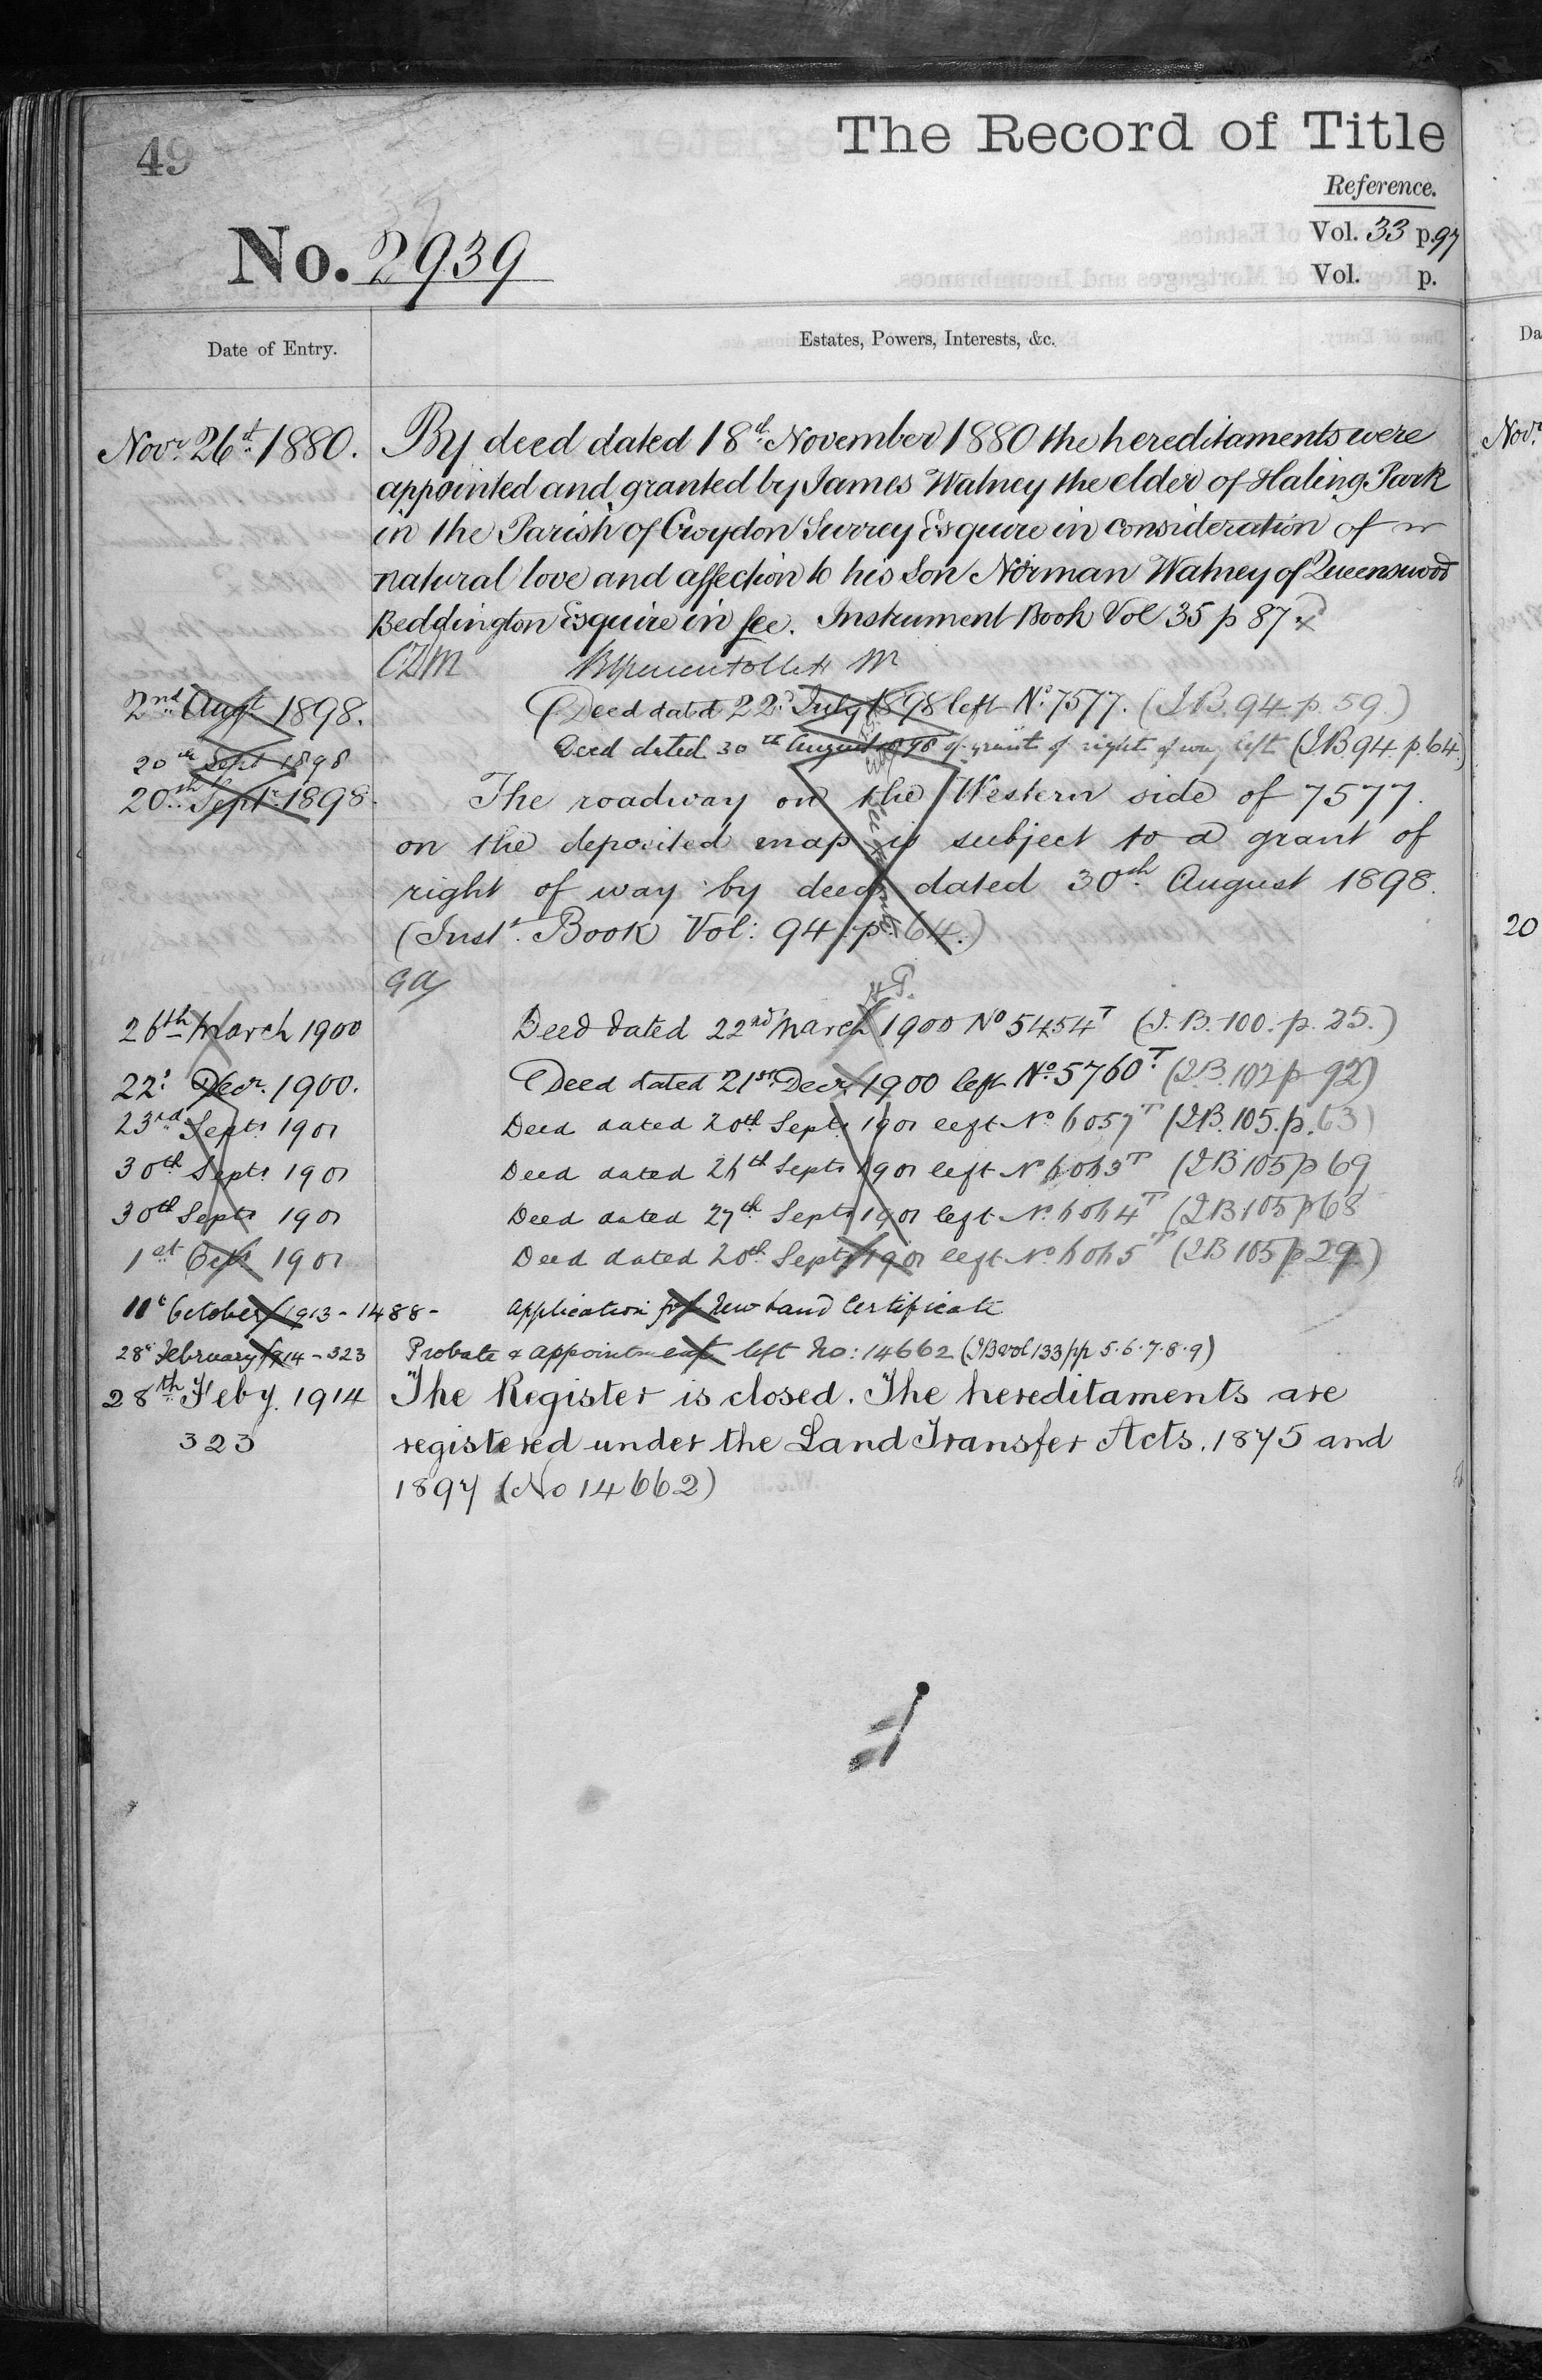 49
The Record of Title
Reference.
No. 2939
Vol. 33 p. 97
Vol. p.
Date of Entry.
Estates, Powers, Interests, &c.
Novr. 26th 1880. By deed dated 18th November 1880 the hereditaments were
appointed and granted by James Watney the elder of Haling Park
in the Parish of Croydon Surrey Esquire in consideration of
natural love and affection to his Son Norman Watney of Queenswood
Beddington Esquire in fee. Instrument Book Vol 35 p 87
2nd Augt 1898. Deed dated 22d July 1898 left No. 7577. (I.B. 94. p. 59.)
20th Sept 1898 Deed dated 30th August 1898 of grant of right of way left (I.B. 94. p. 64.)
20th Septr. 1898. The roadway on the Western side of 7577.
on the deposited map is subject to a grant of
right of way by deed dated 30th August 1898.
(Inst. Book Vol: 94. p. 64.)
26th March 1900 Deed dated 22nd March 1900 No 5454T (I.B. 100. p. 25.)
22d Decr. 1900. Deed dated 21st Decr. 1900 left No. 5760T. (I.B. 102 p 92)
23rd Septr 1901 Deed dated 20th Septr. 1901 left No 6057T (I.B. 105. p. 63)
30th Septr 1901 Deed dated 26th Septr 1901 left No 6063T (I.B 105 p 69
30th Septr 1901 Deed dated 27th Septr 1901 left No. 6064T (I.B 105 p 68
1st Octr 1901 Deed dated 20th Septr 1901 left No 6065T (I.B 105 p 29.)
11th October 1913 - 1488 - Application for New Land Certificate
28th February 1914 - 323 Probate & appointment left No: 14662 (I.B vol 133 pp 5.6.7.8.9)
28th Feby. 1914 The Register is closed. The hereditaments are
323 registered under the Land Transfer Acts. 1875 and
1897 (No 14662)
Da
Novr
20